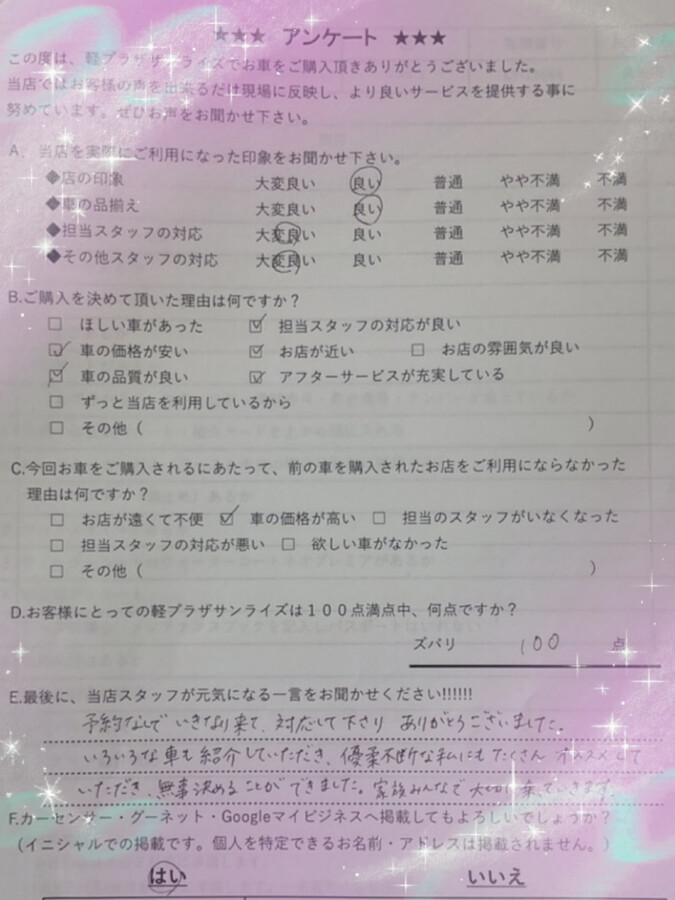 ★★★ アンケート ★★★
この度は、軽プラザサンライズでお車をご購入頂きありがとうございました。
当店ではお客様の声を出来るだけ現場に反映し、より良いサービスを提供する事に
努めています。ぜひお声をお聞かせ下さい。
A、当店を実際にご利用になった印象をお聞かせ下さい。
◆店の印象 大変良い 良い 普通 やや不満 不満
◆車の品揃え 大変良い 良い 普通 やや不満 不満
◆担当スタッフの対応 大変良い 良い 普通 やや不満 不満
◆その他スタッフの対応 大変良い 良い 普通 やや不満 不満
B.ご購入を決めて頂いた理由は何ですか？
□ ほしい車があった ☑ 担当スタッフの対応が良い
☑ 車の価格が安い ☑ お店が近い □ お店の雰囲気が良い
☑ 車の品質が良い ☑ アフターサービスが充実している
□ ずっと当店を利用しているから
□ その他（ ）
C.今回お車をご購入されるにあたって、前の車を購入されたお店をご利用にならなかった
理由は何ですか？
□ お店が遠くて不便 ☑ 車の価格が高い □ 担当のスタッフがいなくなった
□ 担当スタッフの対応が悪い □ 欲しい車がなかった
□ その他（ ）
D.お客様にとっての軽プラザサンライズは１００点満点中、何点ですか？
ズバリ 100 点
E.最後に、当店スタッフが元気になる一言をお聞かせください!!!!!!
予約なしで いきなり来て、対応して下さり ありがとうございました。
いろいろな車も紹介していただき、優柔不断な私にもたくさん オススメして
いただき、無事決めることができました。家族みんなで大切に乗っていきます。
F.カーセンサー・グーネット・Googleマイビジネスへ掲載してもよろしいでしょうか？
（イニシャルでの掲載です。個人を特定できるお名前・アドレスは掲載されません。）
はい いいえ